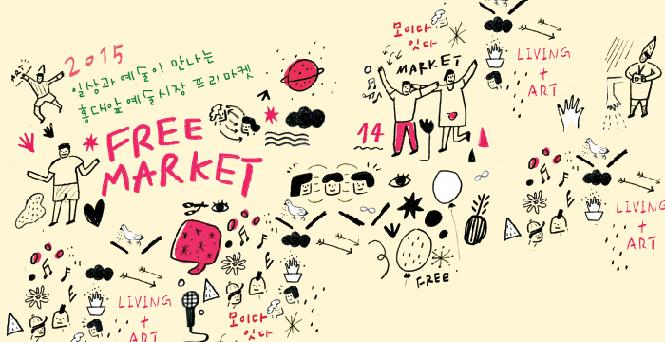 2015
일상과 예술이 만나는
홍대앞 예술시장 프리마켓
FREE
MARKET
모이다
잇다
MARKET
14
LIVING
+
ART
LIVING
+
ART
FREE
LIVING
+
ART
모이다
잇다